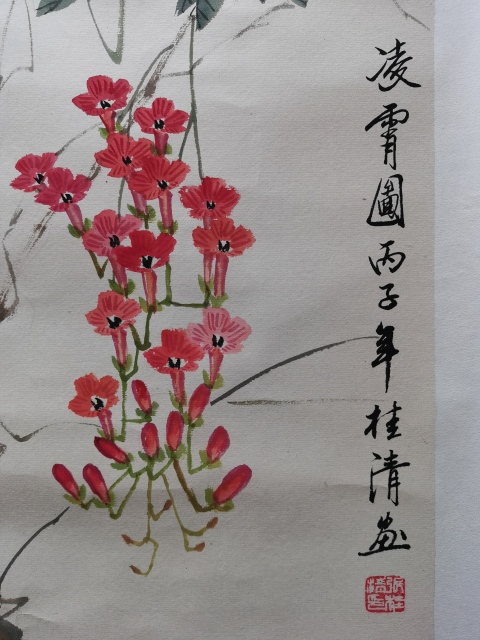 凌霄圖丙子年桂清画